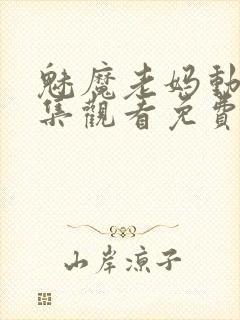 魅魔老妈動
集觀看免費
山岸凉子